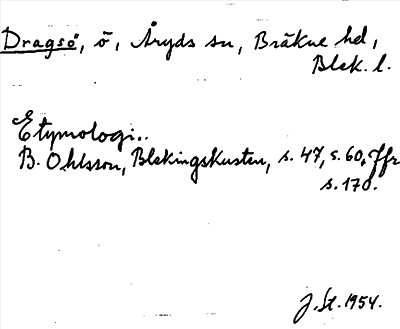 Dragsö, ö, Åryds sn, Bräkne hd,
Blek. l.
Etymologi..
B. Ohlsson, Blekingskusten, s. 47, s. 60, Jfr
s. 170.
J. St. 1954.